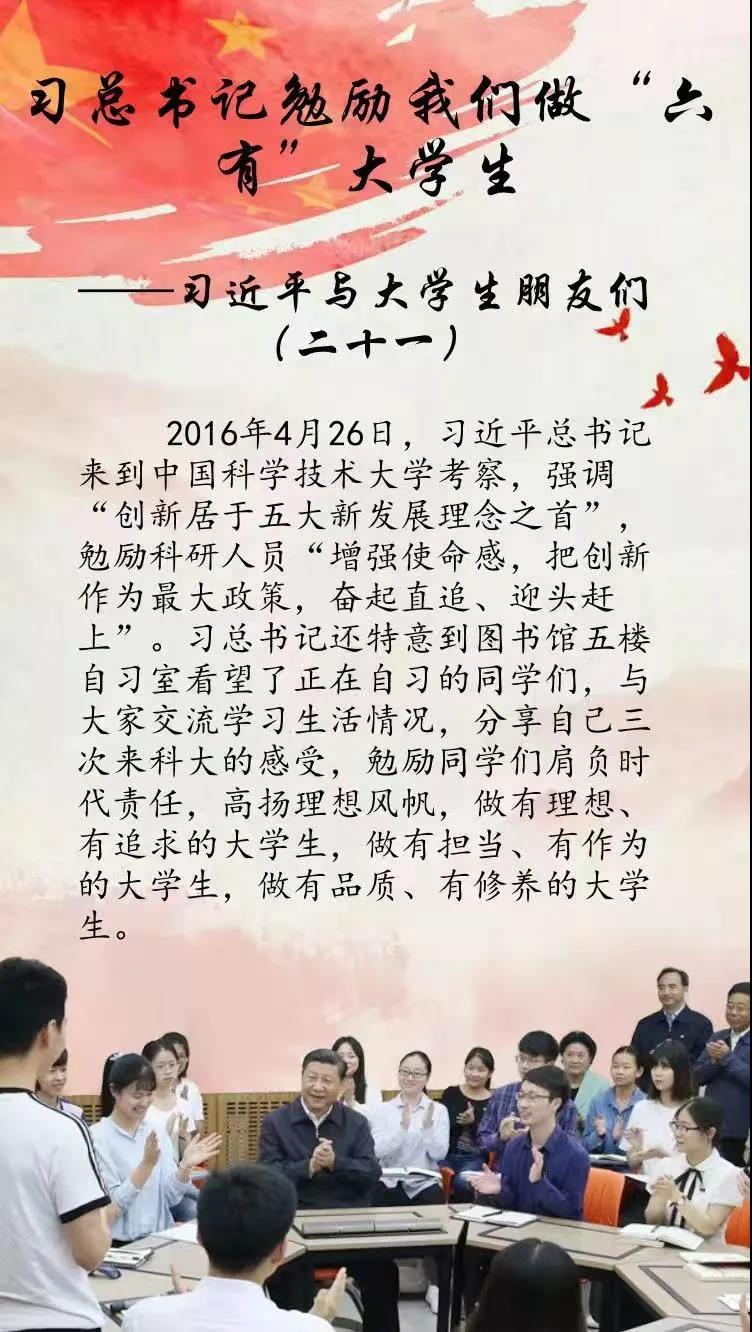 习总书记勉励我们做“六
有”大学生
——习近平与大学生朋友们
（二十一）
2016年4月26日，习近平总书记
来到中国科学技术大学考察，强调
“创新居于五大新发展理念之首”，
勉励科研人员“增强使命感，把创新
作为最大政策，奋起直追、迎头赶
上”。习总书记还特意到图书馆五楼
自习室看望了正在自习的同学们，与
大家交流学习生活情况，分享自己三
次来科大的感受，勉励同学们肩负时
代责任，高扬理想风帆，做有理想、
有追求的大学生，做有担当、有作为
的大学生，做有品质、有修养的大学
生。